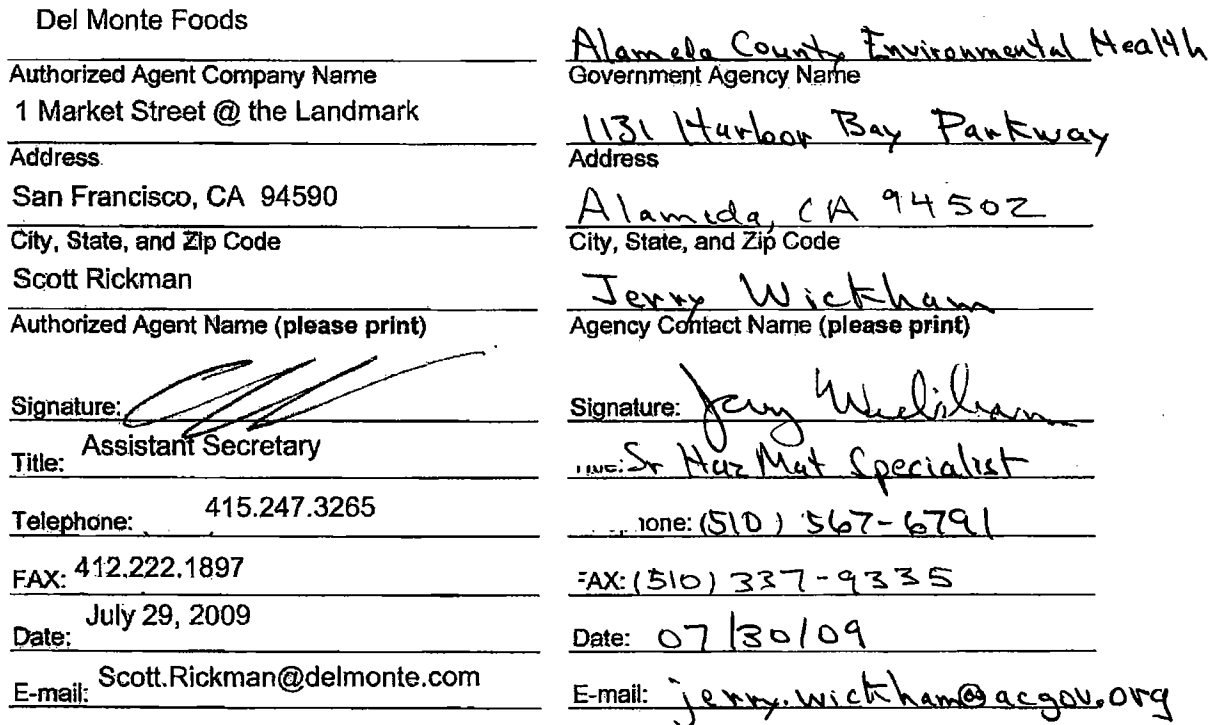 Del Monte Foods
Authorized Agent Company Name
1 Market Street @ the Landmark
Address
San Francisco, CA 94590
City, State, and Zip Code
Scott Rickman
Authorized Agent Name (please print)
Signature:
Title: Assistant Secretary
Telephone: 415.247.3265
FAX: 412.222.1897
Date: July 29, 2009
E-mail: Scott.Rickman@delmonte.com
Alameda County Environmental Health
Government Agency Name
1131 Harbor Bay Parkway
Address
Alameda, CA 94502
City, State, and Zip Code
Jerry Wickham
Agency Contact Name (please print)
Signature: Jerry Wickham
Sr Haz Mat Specialist
(510) 567-6791
FAX: (510) 337-9335
Date: 07/30/09
E-mail: jerry.wickham@acgov.org